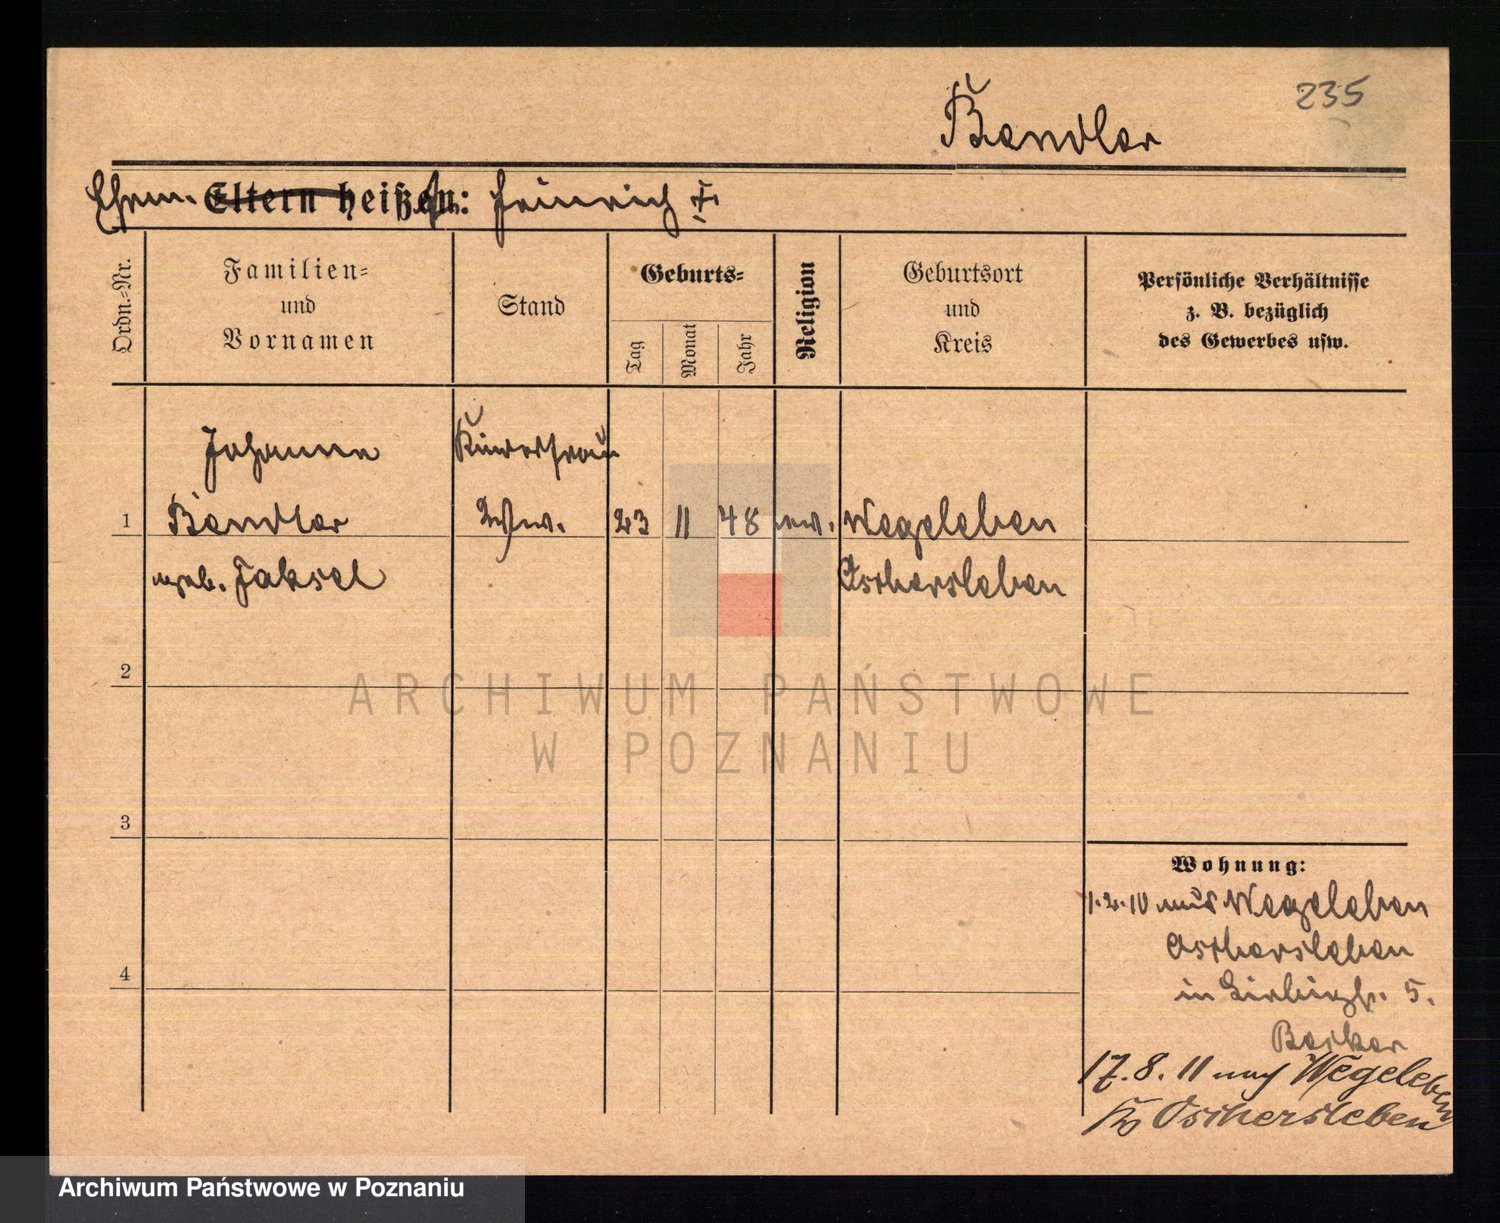 235
Bendler
Ehem. Eltern heißen: Heinrich †
Ordn.-Nr.
Familien-
und
Vornamen
Stand
Geburts-
Tag
Monat
Jahr
Religion
Geburtsort
und
Kreis
Persönliche Verhältnisse
z. B. bezüglich
des Gewerbes usw.
Johanne
1 Bendler Ww. 23 11 48 ev. Wegeleben
geb. Jaksel Oschersleben
2
3
4
Wohnung:
1.2.10 aus Wegeleben
Oschersleben
in 5.
Becker
17.8.11 nach Wegeleben
Krs Oschersleben
ARCHIWUM PAŃSTWOWE
W POZNANIU
Archiwum Państwowe w Poznaniu